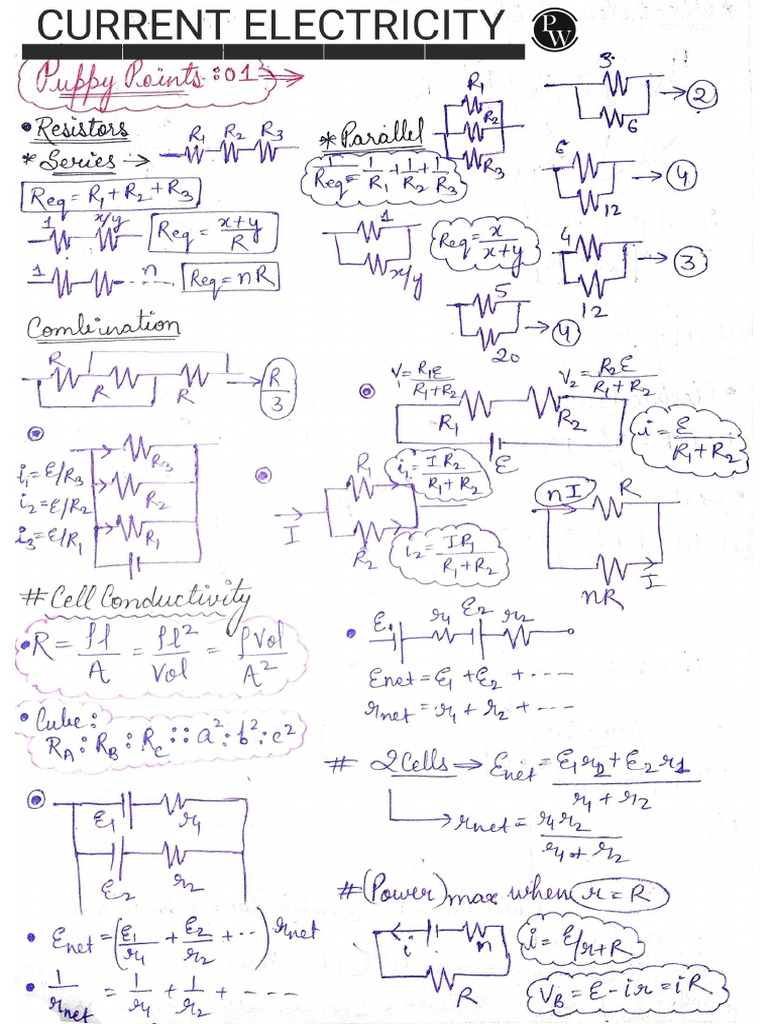 CURRENT ELECTRICITY
PW
Puppy Points:01
• Resistors
R1 R2 R3
* Series →
Req = R1+R2+R3
1 x/y
Req = x+y/R
1 n
Req = nR
* Parallel
R1
R2
R3
1/Req = 1/R1 + 1/R2 + 1/R3
1
x/y
Req = x/x+y
3
6
→ 2
6
12
→ 4
4
12
→ 3
5
20
→ 4
Combination
R R R → R/3
i1 = ℰ/R3
i2 = ℰ/R2
i3 = ℰ/R1
R3
R2
R1
V1 = R1ℰ/R1+R2
V2 = R2ℰ/R1+R2
R1 R2
ℰ
i = ℰ/R1+R2
I
R1
R2
i1 = IR2/R1+R2
i2 = IR1/R1+R2
nI R
nR I
# Cell Conductivity
• R = ρl/A = ρl²/Vol = ρVol/A²
• Cube:
RA : RB : RC :: a² : b² : c²
ℰ1 r1 ℰ2 r2
Enet = ℰ1 + ℰ2 + ----
rnet = r1 + r2 + ----
# 2 Cells → Enet = ℰ1r2 + ℰ2r1/r1 + r2
→ rnet = r1r2/r1+r2
ℰ1 r1
ℰ2 r2
• Enet = (ℰ1/r1 + ℰ2/r2 + --) rnet
• 1/rnet = 1/r1 + 1/r2 + ----
# (Power) max when r = R
i
R
i = ℰ/r+R
VB = ℰ - ir = iR